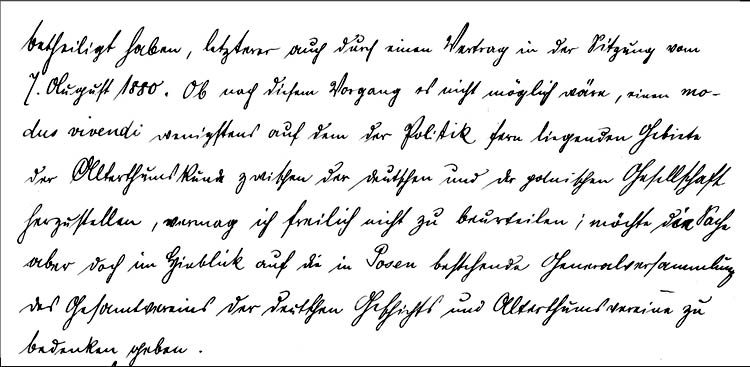 betheiligt haben, letzterer auch durch einen Vertrag in der Sitzung vom
7. August 1880. Ob nach diesem Vorgang es nicht möglich wäre, einen mo-
dus vivendi wenigstens auf dem der Politik fern liegenden Gebiete
der Alterthumskunde zwischen der deutschen und der polnischen Gesellschaft
herzustellen, vermag ich freilich nicht zu beurteilen; möchte die Sache
aber doch im Hinblick auf die in Posen bestehende Generalversammlung
des Gesamtvereins der deutschen Geschichts und Alterthumsvereine zu
bedenken geben.